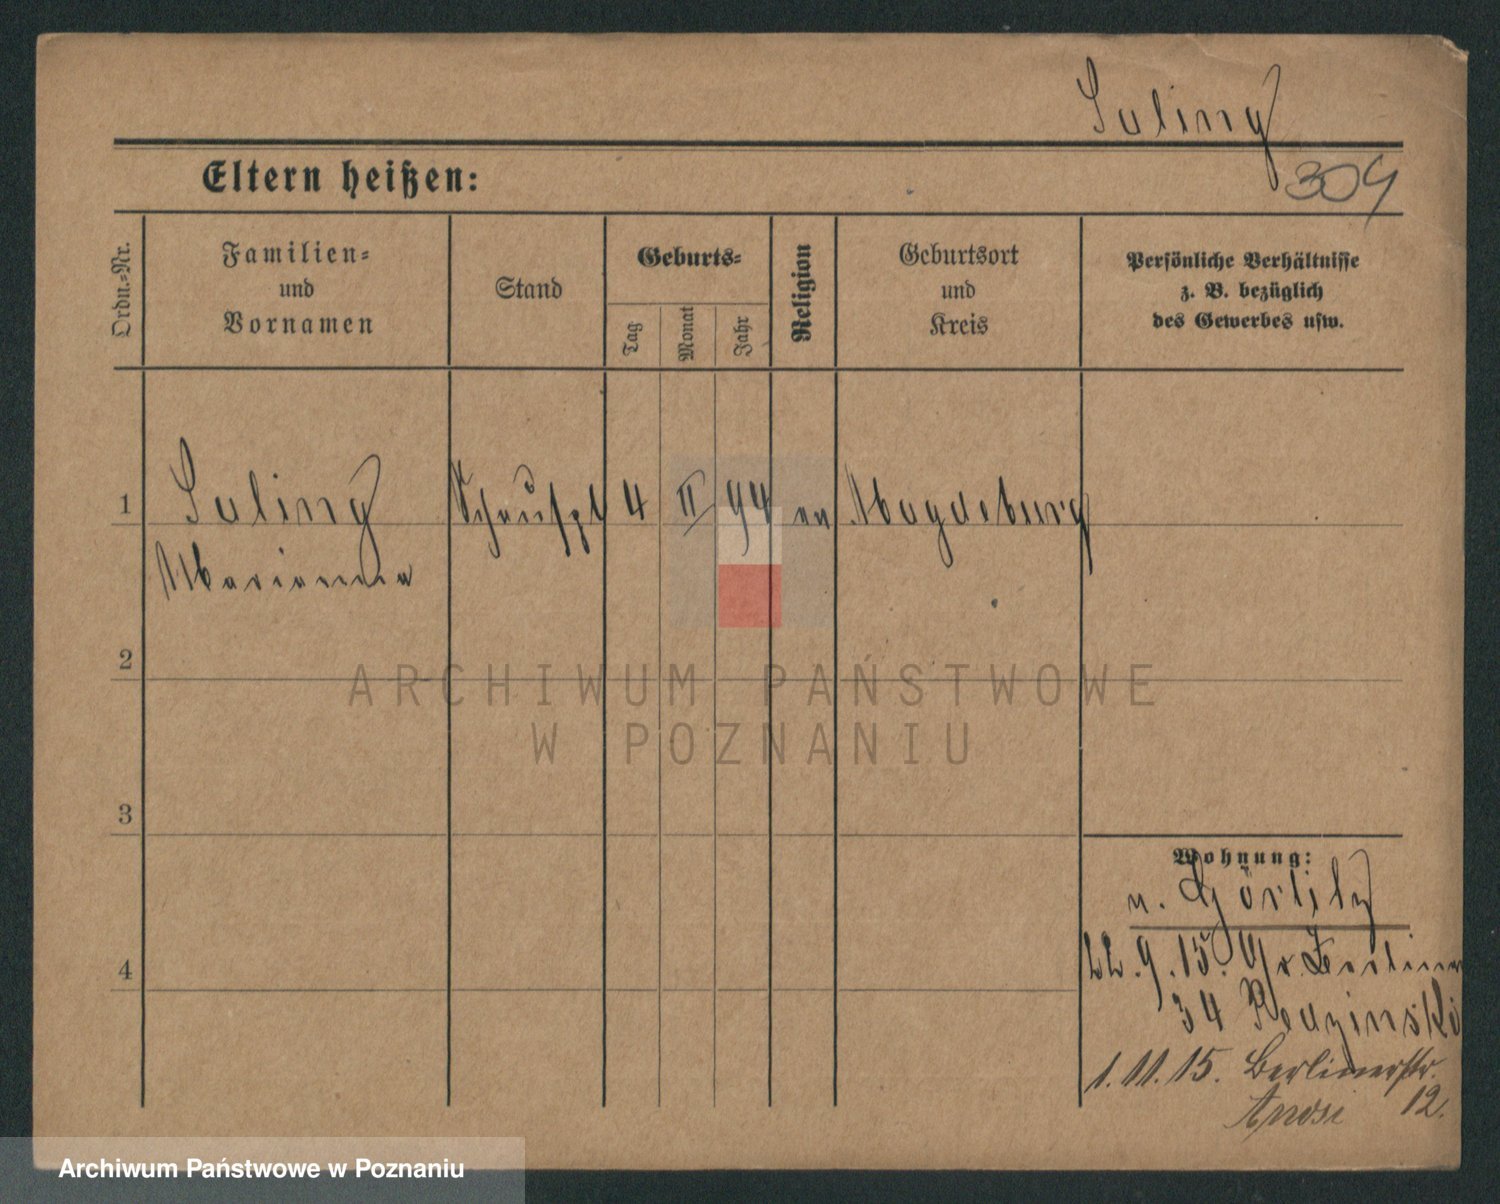 Saling
Eltern heißen:
304
Ordn.-Nr.
Familien-
und
Vornamen
Stand
Geburts-
Tag
Monat
Jahr
Religion
Geburtsort
und
Kreis
Persönliche Verhältnisse
z. B. bezüglich
des Gewerbes usw.
1
Saling
Schauspl
4
II
94
ev
Magdeburg
Marianna
2
ARCHIWUM PAŃSTWOWE
W POZNANIU
3
Wohnung:
v. Görlitz
4
22.9.15. Gr. Berliner
34
1.11.15. Berlinerstr.
12.
Archiwum Państwowe w Poznaniu